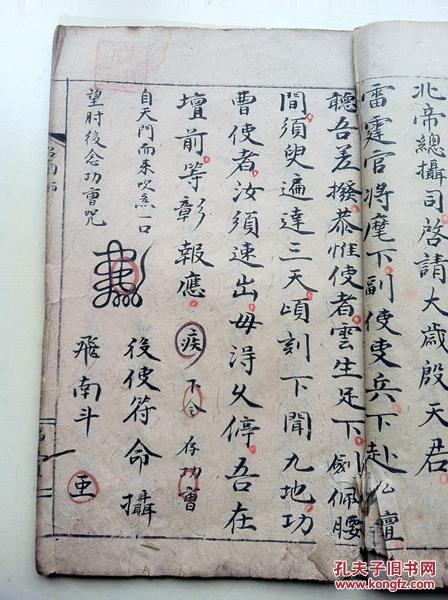 北帝總攝司啓請大歲殷天君
雷霆官將麾下副使吏兵下赴
聽吾差撥恭惟使者雲生足下佩腰
間須臾遍達三天頃刻下聞九地功
曹使者汝須速出毋得久停吾在
壇前等彰報應疾下令存功曹
自天門而來吹炁一口
望肘後念功曹咒
後使符命攝
飛南斗
孔夫子旧书网